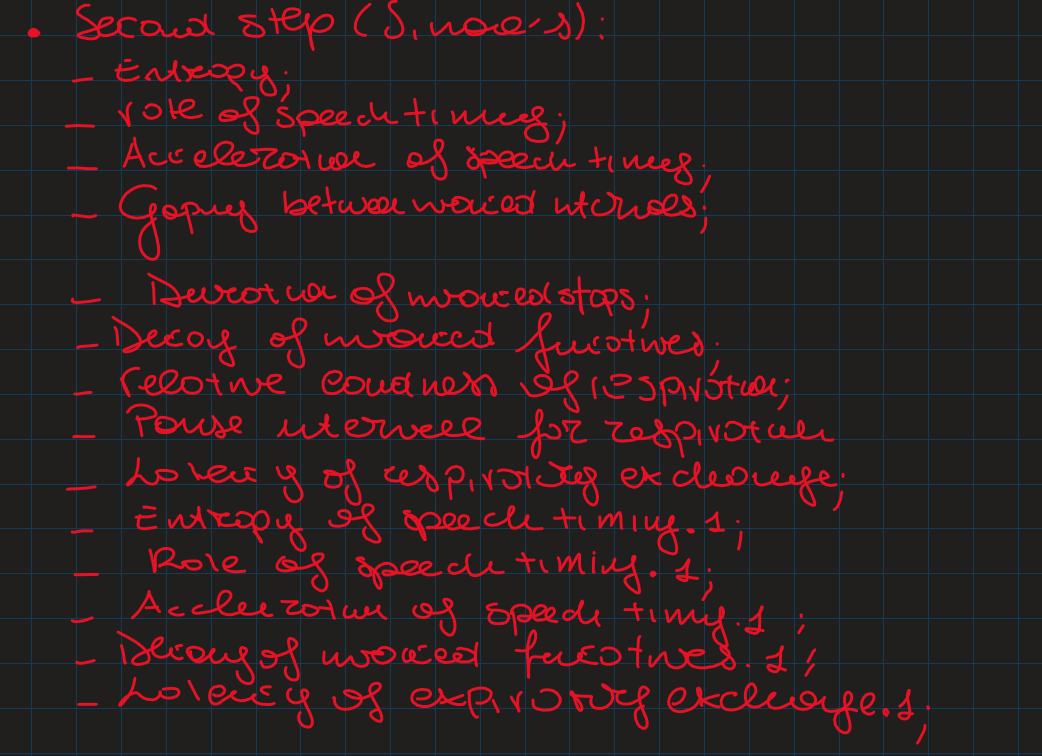 • Second step (J. noie's):
- Entropy;
- rote of speech timing;
- Acceleration of speech timing;
- Gaping between voiced intervals;
- Duration of unvoiced stops;
- Decay of unvoiced fricatives;
- relative loudness of respiration;
- Pause intervall for respiration
- Latency of respiratory exchange;
- Entropy of speech timing.1;
- Rate of speech timing.1;
- Accleration of speech timing.1;
- Decay of unvoiced fricatives.1;
- Latency of expiratory exchange.1;